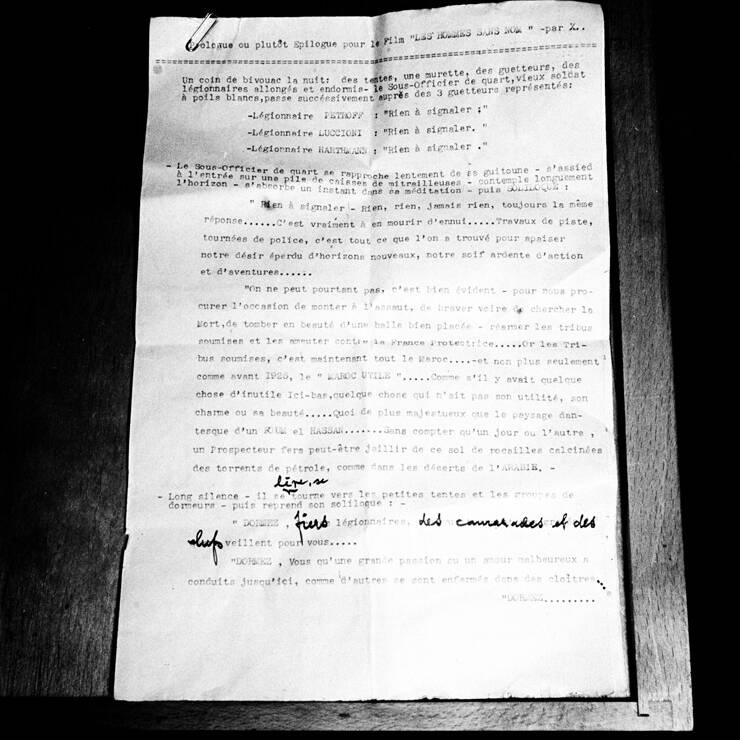 Prologue ou plutôt Epilogue pour le Film "LES HOMMES SANS NOM " -par X..
Un coin de bivouac la nuit: des tentes, une murette, des guetteurs, des
légionnaires allongés et endormis- le Sous-Officier de quart,vieux soldat
à poils blancs,passe succéssivement auprès des 3 guetteurs représentés:
-Légionnaire PETROFF : "Rien à signaler ;"
-Légionnaire LUCCIONI : "Rien à signaler. "
-Légionnaire HARTHMANN : "Rien à signaler ."
- Le Sous-Officier de quart se rapproche lentement de sa guitoune - s'assied
à l'entrée sur une pile de caisses de mitrailleuses - contemple longuement
l'horizon - s'absorbe un instant dans sa méditation - puis SOLILOQUE :
" Rien à signaler - Rien, rien, jamais rien, toujours la même
réponse......C'est vraiment à en mourir d'ennui.....Travaux de piste,
tournées de police, c'est tout ce que l'on a trouvé pour apaiser
notre désir éperdu d'horizons nouveaux, notre soif ardente d'action
et d'aventures......
"On ne peut pourtant pas, c'est bien évident - pour nous pro-
curer l'occasion de monter à l'assaut, de braver voire de chercher la
Mort,de tomber en beauté d'une balle bien placée - réarmer les tribus
soumises et les ameuter contre la France Protectrice.....Or les Tri-
bus soumises, c'est maintenant tout le Maroc....-et non plus seulement
comme avant 1925, le " MAROC UTILE ".....Comme s'il y avait quelque
chose d'inutile Ici-bas,quelque chose qui n'ait pas son utilité, son
charme ou sa beauté.....Quoi de plus majestueux que le paysage dan-
tesque d'un FOUM el HASSAN.......Sans compter qu'un jour ou l'autre ,
un Prospecteur fera peut-être jaillir de ce sol de rocailles calcinées
des torrents de pétrole, comme dans les déserts de l'ARABIE. -
lève, se
- Long silence - il se tourne vers les petites tentes et les groupes de
dormeurs - puis reprend son soliloque : -
" DORMEZ , fiers légionnaires, des camarades et des
chefs veillent pour vous.....
"DORMEZ , Vous qu'une grande passion ou un amour malheureux a
conduits jusqu'ici, comme d'autres se sont enfermés dans des cloîtres...
"DORMEZ.........